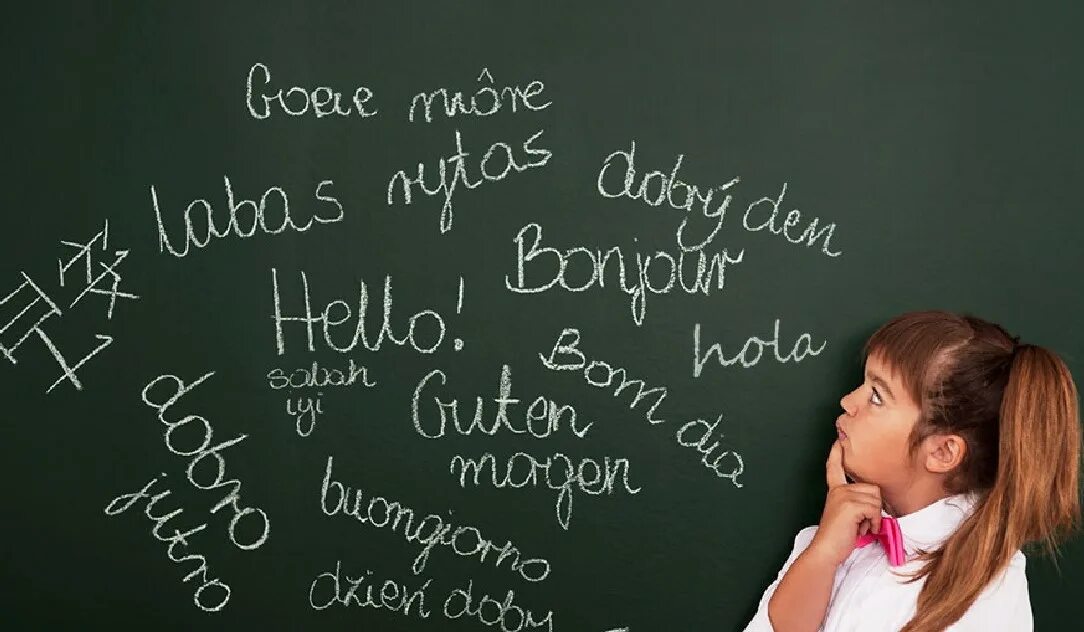 Goeie môre
labas rytas
dobrý den
Bonjour
早安
Hello!
hola
sabah
iyi
Bom dia
Guten
magen
dobro
jutro
buongiorno
dzień doby